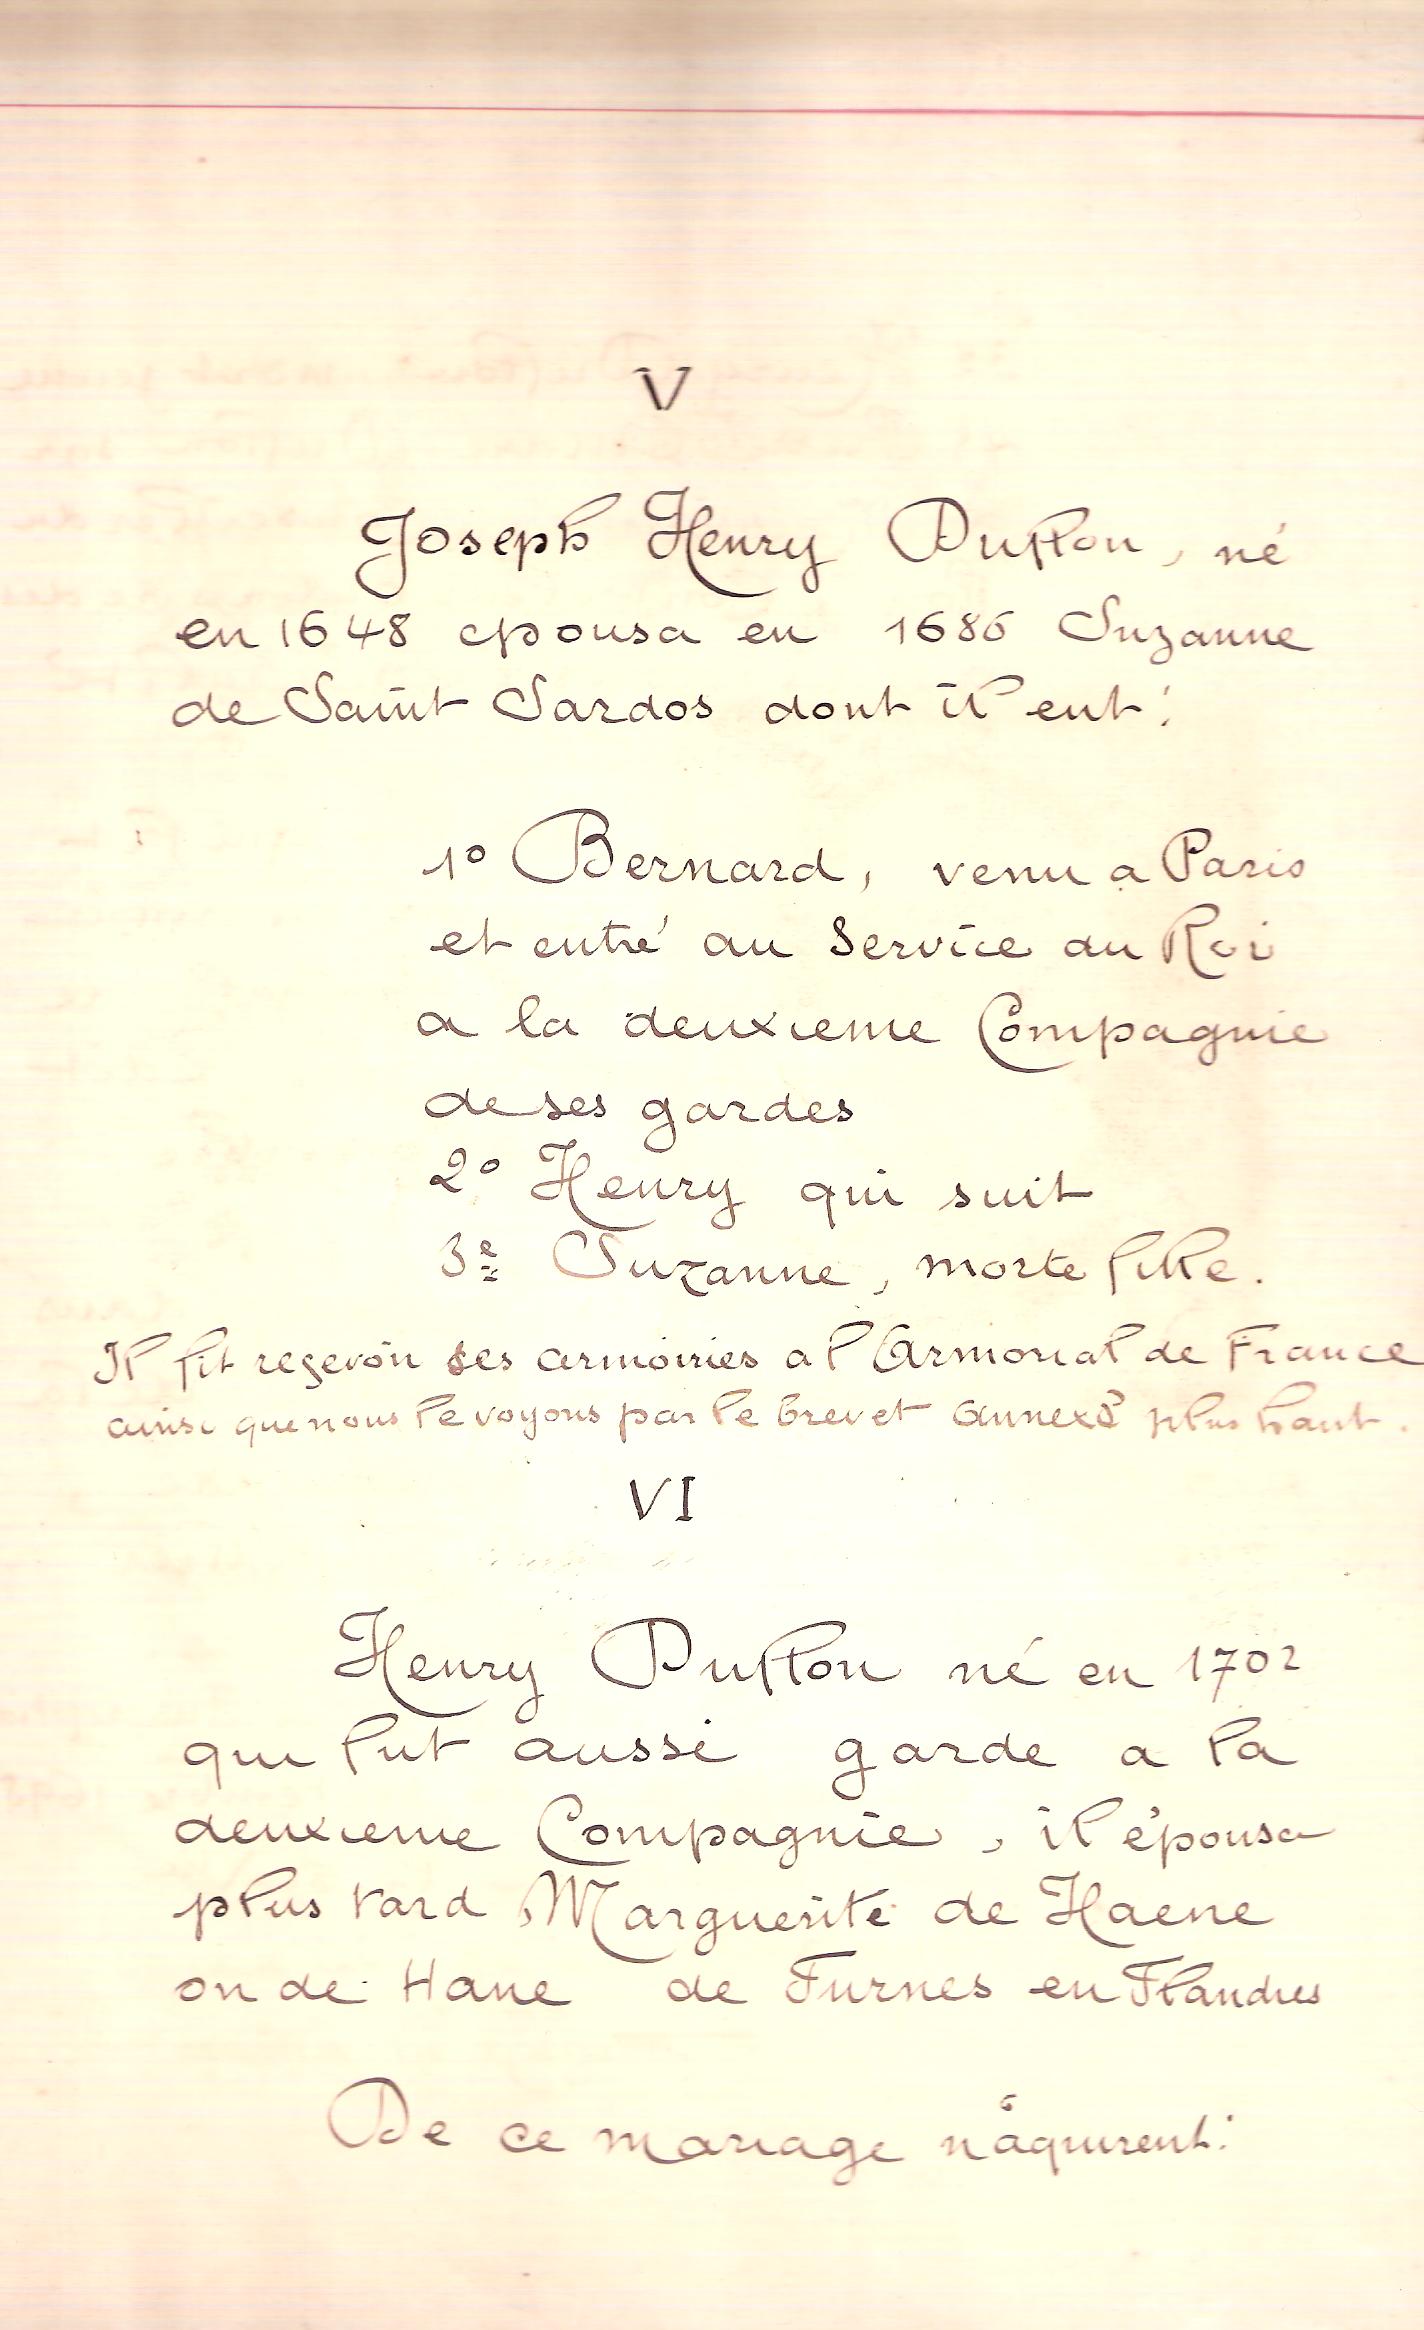 V
Joseph Henry Duffon, né
en 1648 epousa en 1686 Suzanne
de Saint Sardos dont il eut :
1º Bernard, venu a Paris
et entré au Service du Roi
a la deuxieme Compagnie
de ses gardes
2º Henry qui suit
3e Suzanne, morte fille.
Il fit reçevoir ses armoiries a l'Armorial de France
ainsi que nous le voyons par le brevet annexé plus haut.
VI
Henry Duffon né en 1702
qui fut aussi garde a la
deuxieme Compagnie, il épousa
plus tard Marguerite de Haene
ou de Hane de Furnes en Flandres
De ce mariage nâquirent :